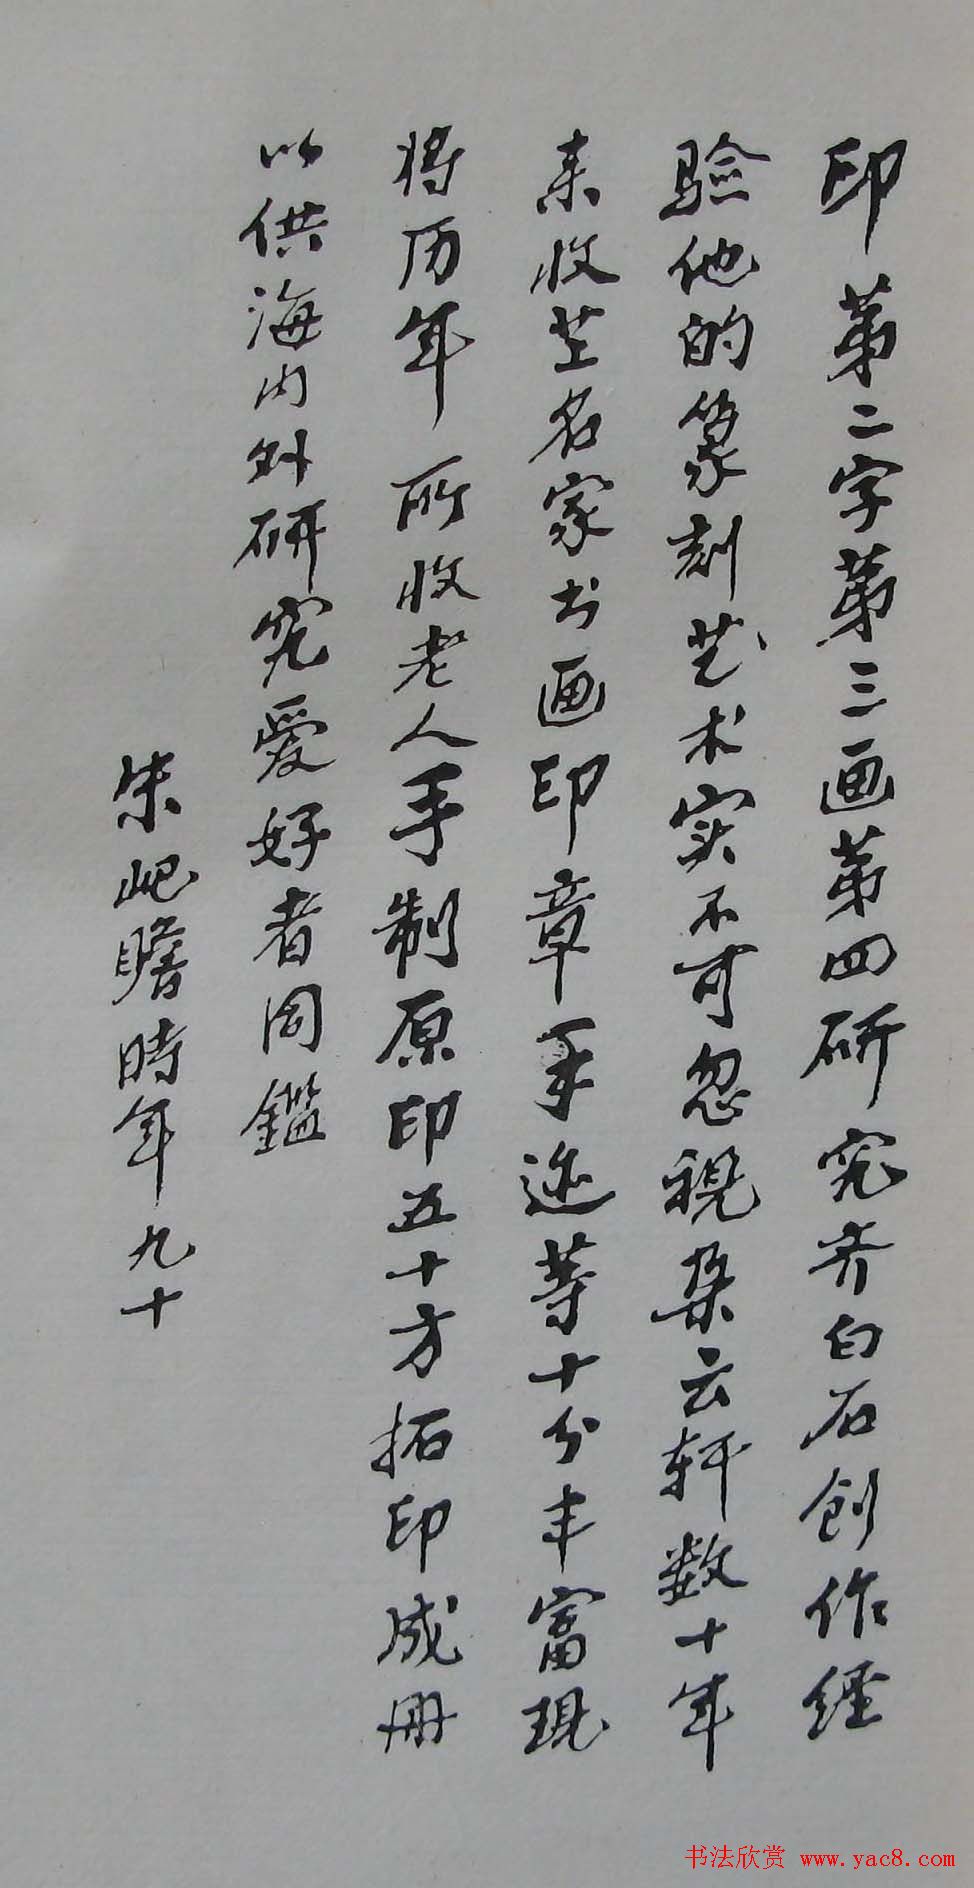 印第二字第三画第四研究齐白石创作经
验他的篆刻艺术实不可忽视朵云轩数十年
来收芷名家书画印章手迹等十分丰富现
将历年所收老人手制原印五十方拓印成册
以供海内外研究爱好者同鑑
朱屺瞻時年九十
书法欣赏 www.yac8.com